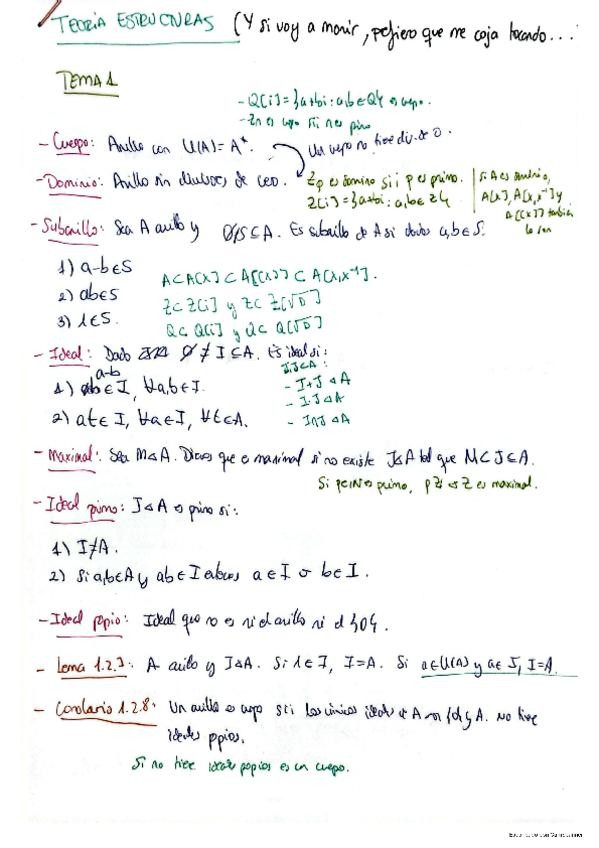 TEORÍA ESTRUCTURAS (Y si voy a morir, prefiero que me coja tocando...
TEMA 1
- Q[i]={a+bi: a,b∈Q} es cuerpo.
- Zn es cupo sii n es primo
- Cuerpo: Anillo con U(A)=A*. Un cuerpo no tiene div. de 0.
- Dominio: Anillo sin divisores de cero. Zp es dominio sii p es primo.
Z[i]={a+bi: a,b∈Z}
si A es dominio,
A[x], A[x,x⁻¹] y
A[[x]] también
lo son
- Subanillo: Sea A anillo y Ø≠S⊆A. Es subanillo de A si dados a,b∈S:
1) a-b∈S
2) ab∈S
3) 1∈S.
A⊂A[x]⊂A[[x]]⊂A[x,x⁻¹].
Z⊂Z[i] y Z⊂Z[√D]
Q⊂Q[i] y Q⊂Q[√D]
- Ideal: Dado Ø≠I⊆A. Es ideal si:
a-b
1) ∈I, ∀a,b∈I.
2) at∈I, ∀a∈I, ∀t∈A.
I,J⊲A:
- I+J⊲A
- IJ⊲A
- I∩J⊲A
- Maximal: Sea M⊲A. Dicemos que es maximal si no existe J⊲A tal que M⊂J⊆A.
Si p∈N es primo, pZ es Z es maximal.
- Ideal primo: I⊲A es primo si:
1) I≠A.
2) Si a,b∈A y ab∈I entonces a∈I o b∈I.
- Ideal propio: Ideal que no es ni el anillo ni el {0}.
- Lema 1.2.3: A anillo y I⊲A. Si 1∈I, I=A. Si a∈U(A) y a∈I, I=A.
- Corolario 1.2.8: Un anillo es cuerpo sii los únicos ideales de A son {0} y A. No tiene
ideales propios.
Si no tiene ideales propios es un cuerpo.